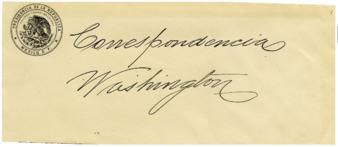 PRESIDENCIA DE LA REPUBLICA
MEXICO
Correspondencia
Washington